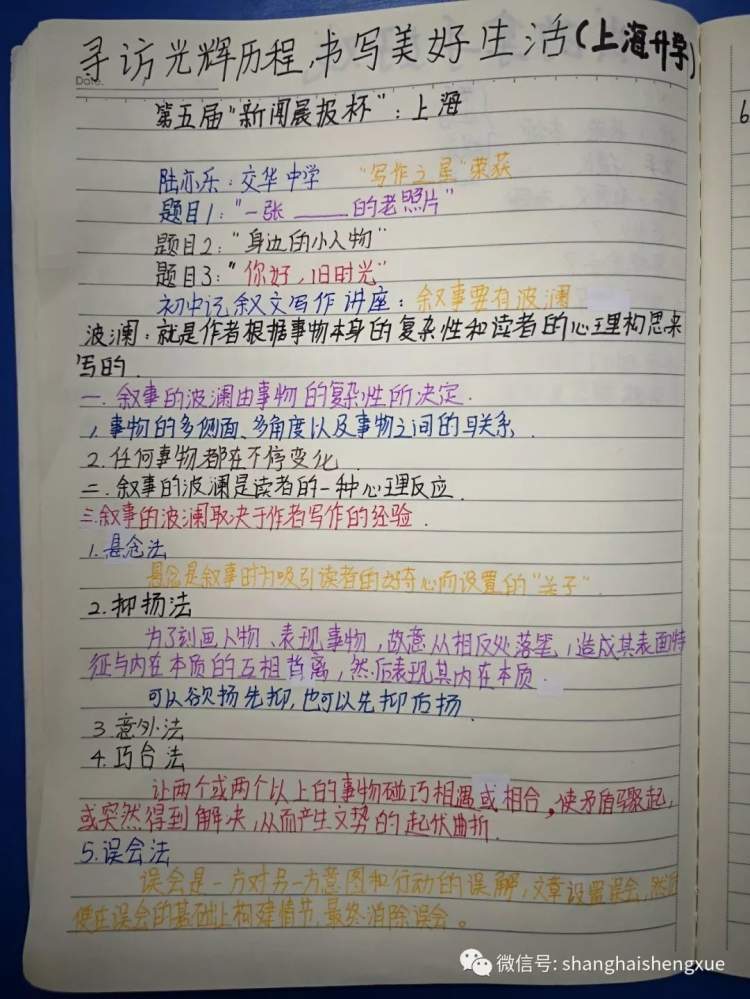 寻访光辉历程,书写美好生活(上海升学)
Date.
第五届"新闻晨报杯":上海
陆亦乐:交华中学 "写作之星"荣获
题目1:"一张____的老照片"
题目2:"身边的小人物"
题目3:"你好,旧时光"
初中记叙文写作讲座:叙事要有波澜
波澜:就是作者根据事物本身的复杂性和读者的心理构思来
写的.
一.叙事的波澜由事物的复杂性所决定.
1.事物的多侧面、多角度以及事物之间的关系.
2.任何事物都在不停变化.
二.叙事的波澜是读者的一种心理反应.
三.叙事的波澜取决于作者写作的经验.
1.悬念法
悬念是叙事时为吸引读者的好奇心而设置的"关子".
2.抑扬法
为了刻画人物、表现事物,故意从相反处落笔,造成其表面特
征与内在本质的互相背离,然后表现其内在本质.
可以欲扬先抑,也可以先抑后扬.
3.意外法
4.巧合法
让两个或两个以上的事物碰巧相遇或相合,使矛盾骤起,
或突然得到解决,从而产生文势的起伏曲折.
5.误会法
误会是一方对另一方意图和行动的误解,文章设置误会,然后
便在误会的基础上构建情节,最终消除误会。
6
微信号: shanghaishengxue